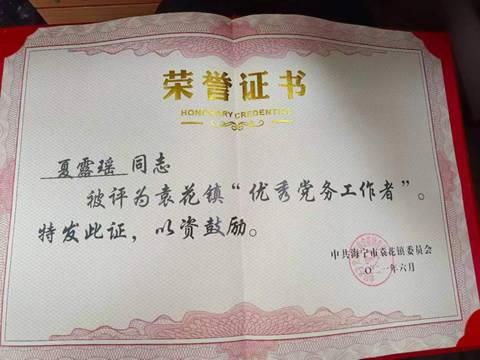 荣誉证书
HONORARY CREDENTIAL
夏露瑶 同志
被评为袁花镇“优秀党务工作者”。
特发此证,以资鼓励。
中共海宁市袁花镇委员会
〇二一年六月